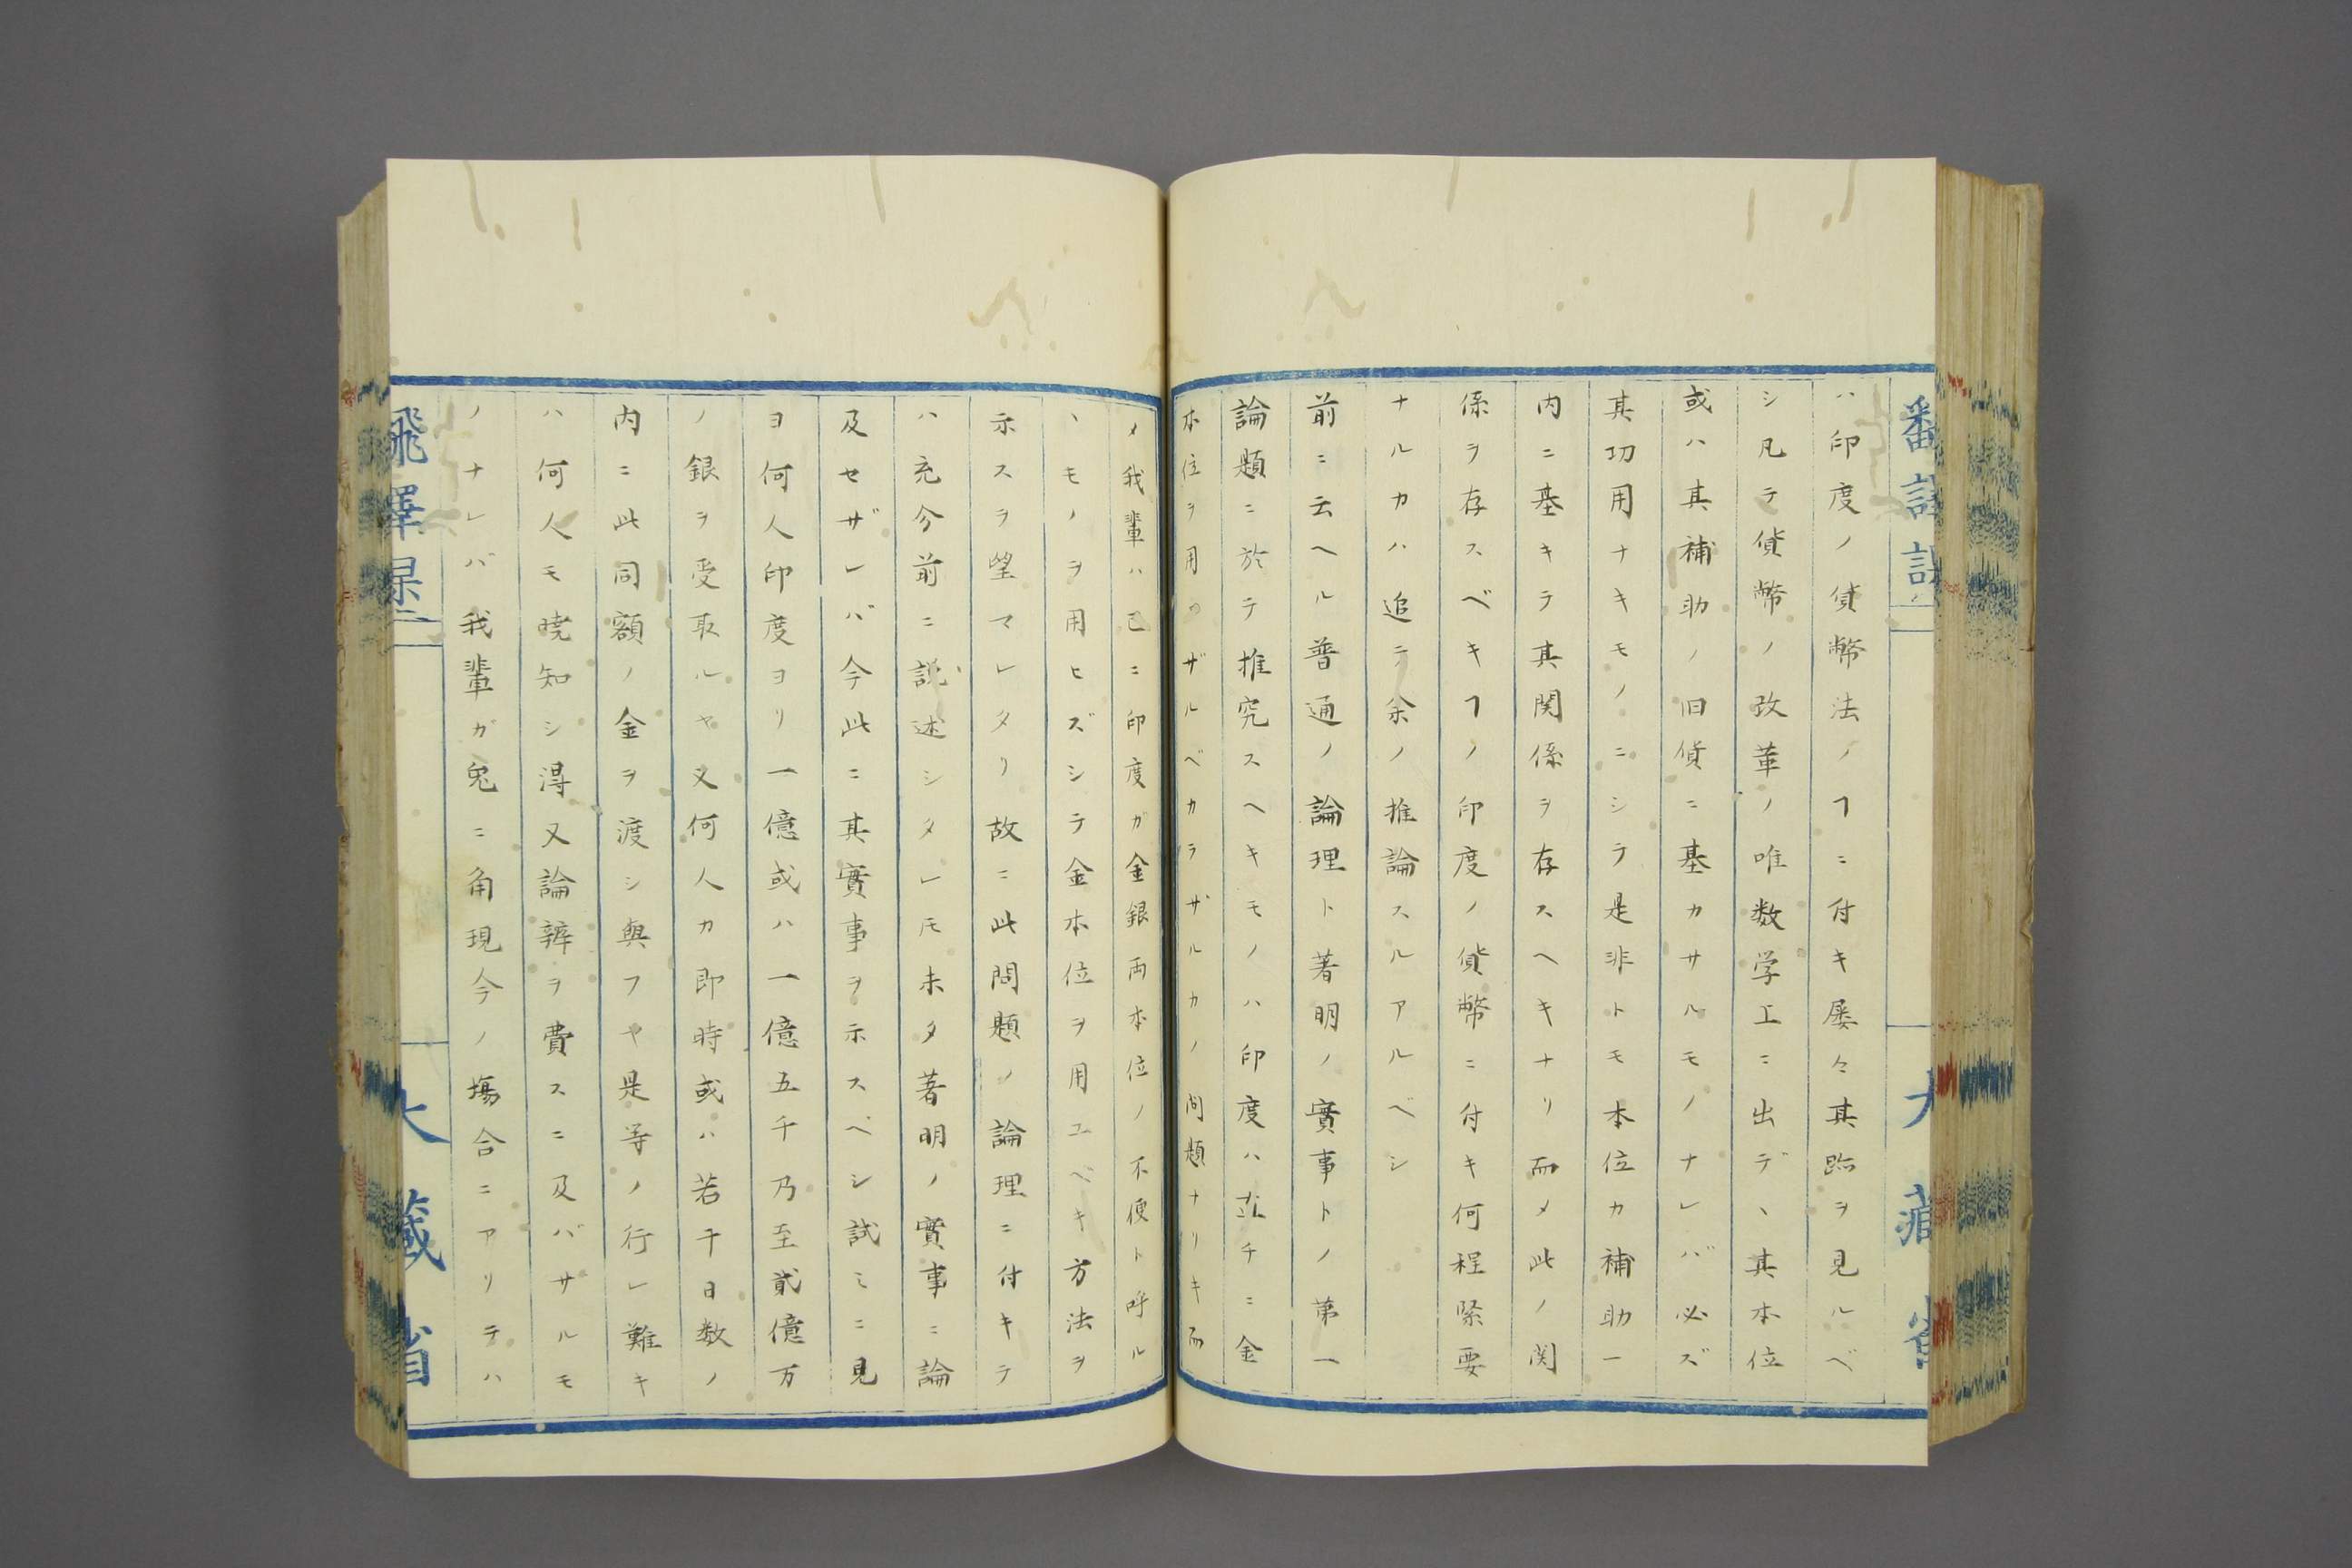 ハ印度ノ貨幣法ノヿニ付キ屡々其跡ヲ見ルベ
シ凡テ貨幣ノ改革ノ唯数学工ニ出デヽ其本位
或ハ其補助ノ旧貨ニ基カサルモノナレバ必ズ
其功用ナキモノニシテ是非トモ本位カ補助一
内ニ基キテ其関係ヲ存スヘキナリ而メ此ノ関
係ヲ存スベキヿノ印度ノ貨幣ニ付キ何程緊要
ナルカハ追テ余ノ推論スルアルベシ
前ニ云ヘル普通ノ論理ト著明ノ實事トノ第一
論題ニ於テ推究スヘキモノハ印度ハ直チニ金
本位ヲ用ウザルベカラザルカノ問題ナリキ而
メ我輩ハ已ニ印度ガ金銀両本位ノ不便ト呼ル
ヽモノヲ用ヒズシテ金本位ヲ用ユベキ方法ヲ
示スヲ望マレタリ故ニ此問題ノ論理ニ付キテ
ハ充分前ニ説述シタレモ未タ著明ノ實事ニ論
及セザレバ今此ニ其實事ヲ示スベシ試ミニ見
ヨ何人印度ヨリ一億或ハ一億五千乃至貮億万
ノ銀ヲ受取ルヤ又何人カ即時或ハ若干日数ノ
内ニ此同額ノ金ヲ渡シ與フヤ是等ノ行レ難キ
ハ何人モ暁知シ得又論辨ヲ費スニ及バサルモ
ノナレバ我輩ガ兎ニ角現今ノ塲合ニアリテハ
大藏省